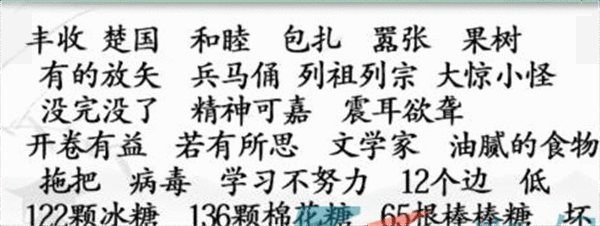 丰收 楚国 和睦 包扎 嚣张 果树
有的放矢 兵马俑 列祖列宗 大惊小怪
没完没了 精神可嘉 震耳欲聋
开卷有益 若有所思 文学家 油腻的食物
拖把 病毒 学习不努力 12个边 低
122颗冰糖 136颗棉花糖 65根棒棒糖 坏